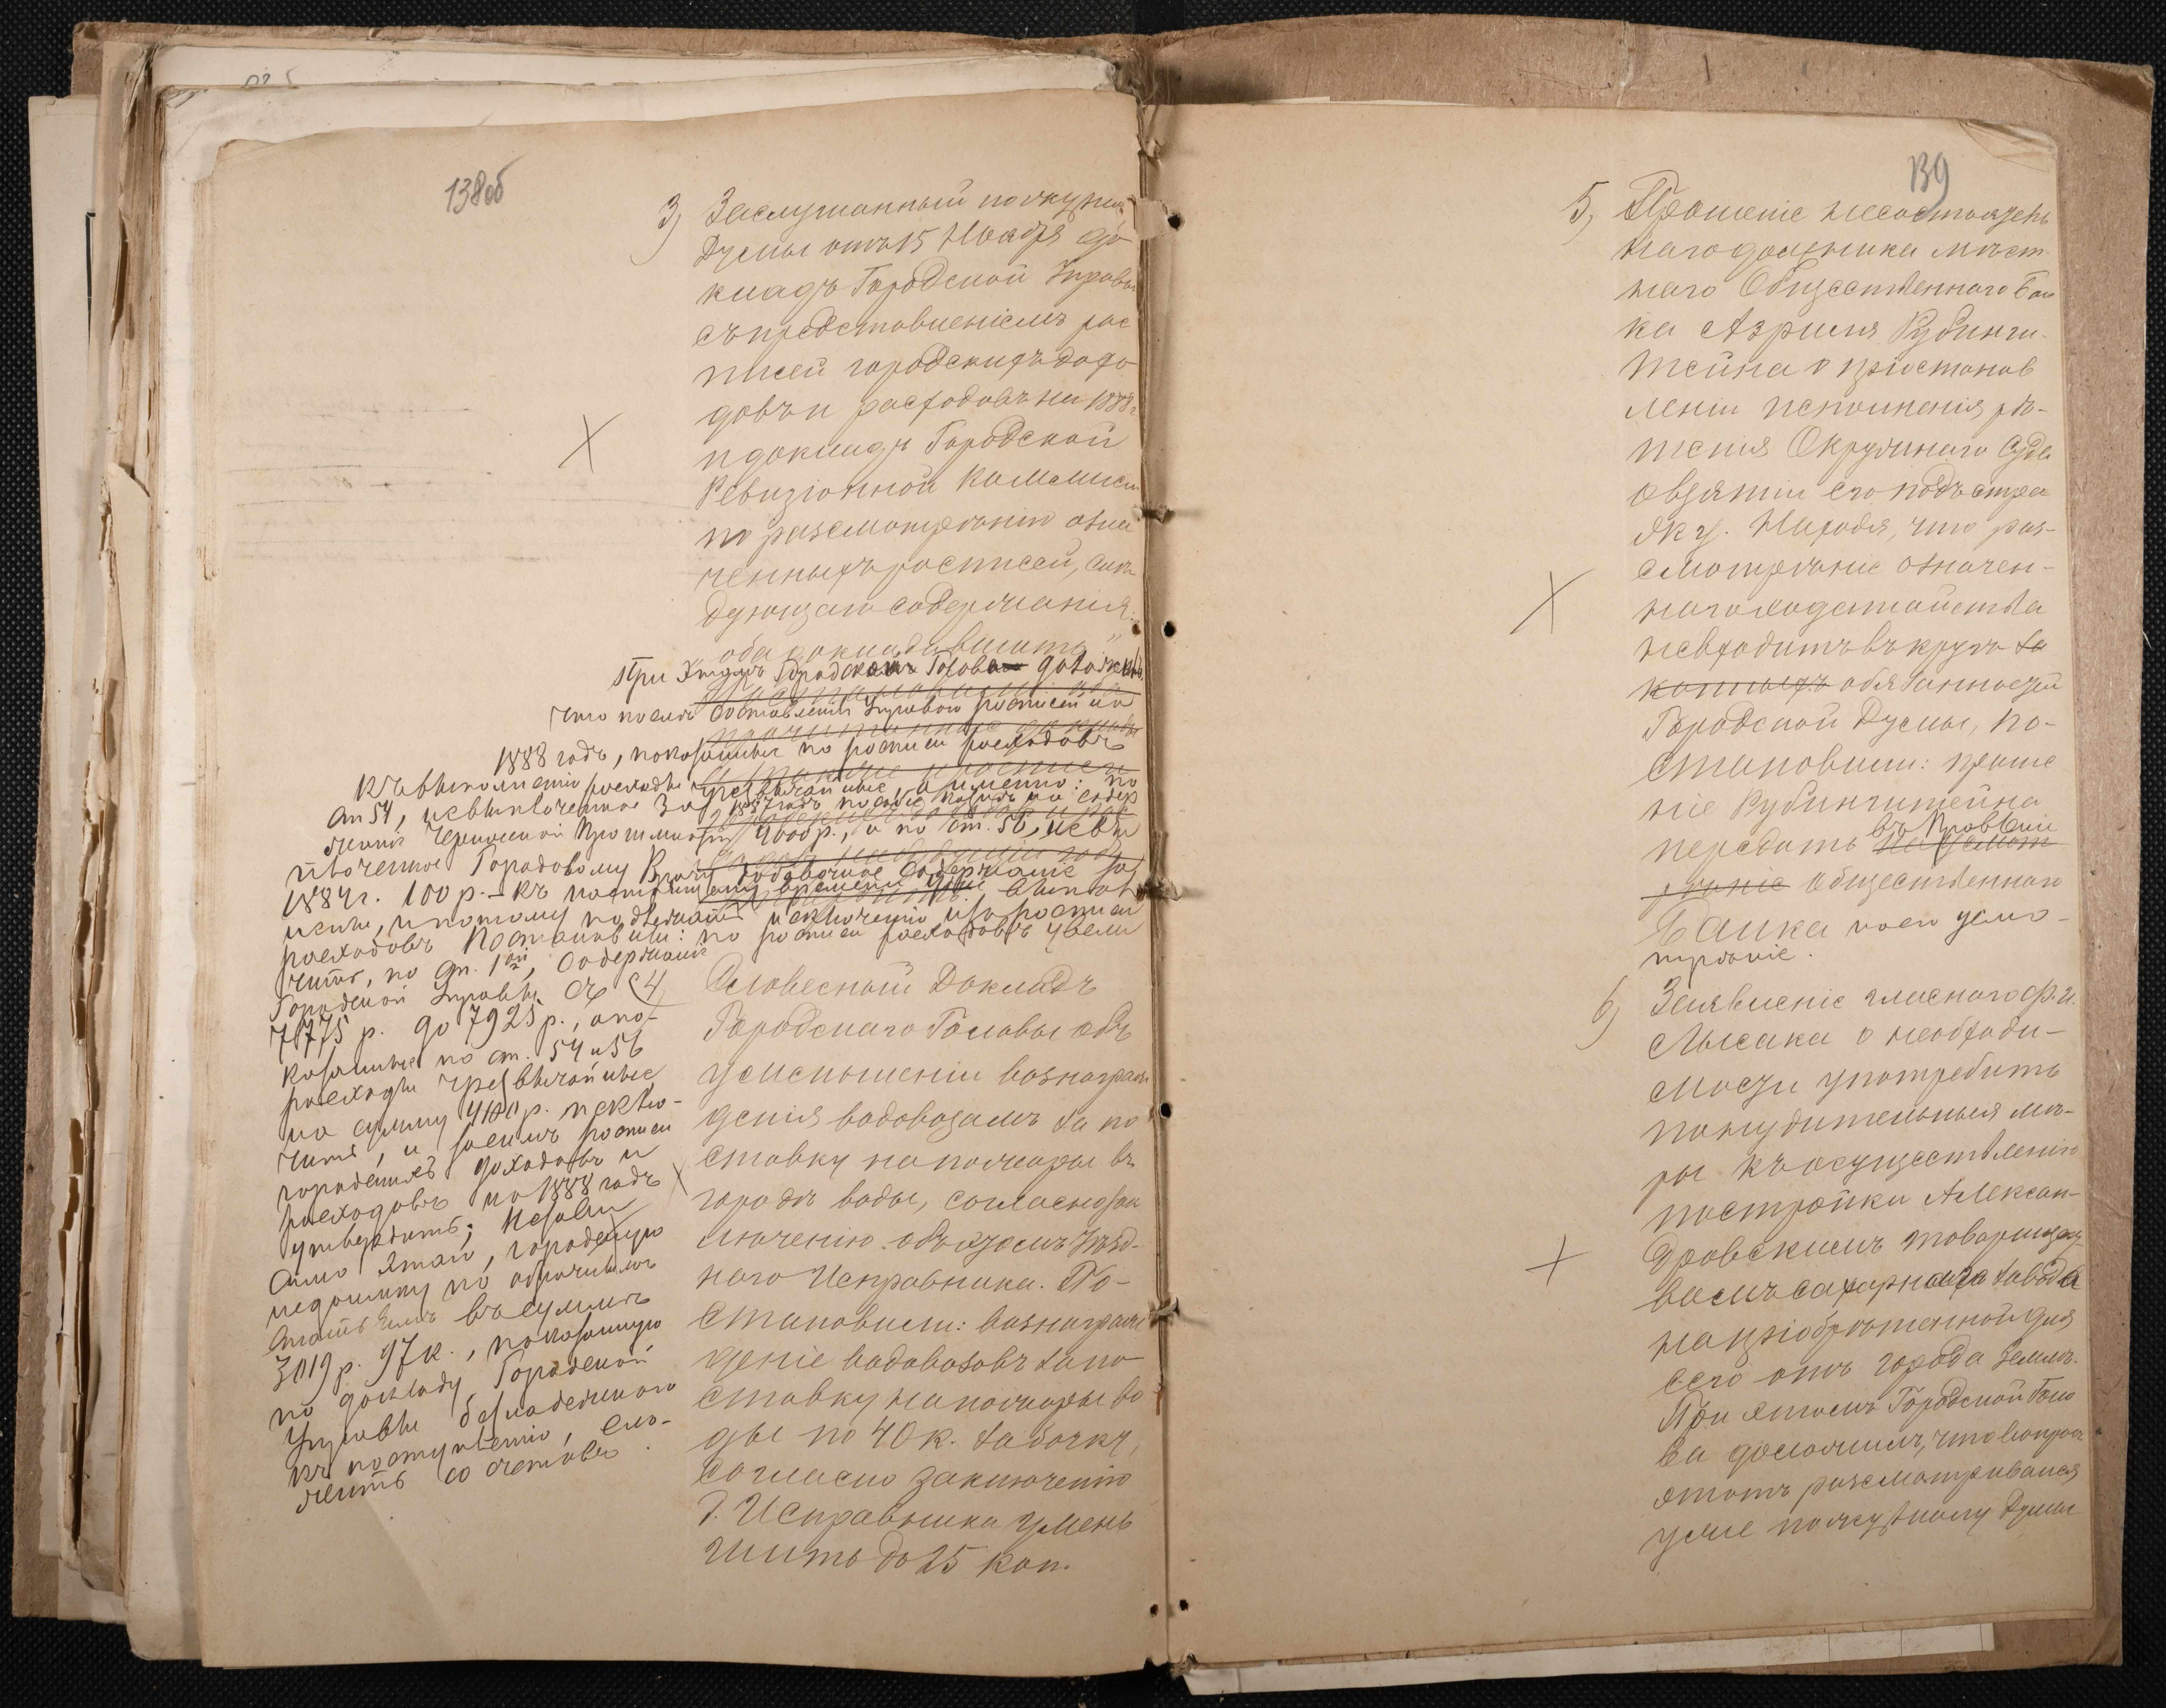 138об
3) Заслушанный по журналу
Думы отъ 15 Ноября до
кладъ Городской Управы
съ представленіемъ рос
писей городскихъ дохо
довъ и расходовъ на 1888 г.
и докладъ Городской
Ревизіонной Коммисіи
по разсмотрѣнію озна
ченныхъ росписей, слѣ
дующаго содержанія:
"оба доклада вписать"
При этомъ Городской Голова доложилъ,
что послѣ составленія Управою росписи на
1888 годъ, показанные по росписи расходовъ
къ выполненію расходы чрезвычайные, а именно: по
ст. 54, невыплаченное за 1887 годъ пособіе на содер
жаніе Прогимназіи 4000 р., и по ст. 56, невы
плаченное Городовому Врачу добавочное содержаніе за
1884 г. 100 р. – къ настоящему времени уже выпла
чены, и потому подлежатъ исключенію изъ росписи
расходовъ. Постановили: по росписи расходовъ увели
чить, по ст. 1ой, содержаніе
Городской Управы съ
7775 р. до 7925 р., а по-
казанные по ст. 54 и 56
расходы чрезвычайные
на сумму 4100 р. исклю-
чить, и засимъ росписи
городскихъ доходовъ и
расходовъ на 1888 годъ
утвердить; независи
симо этого, городскую
недоимку по оброчнымъ
статьямъ въ суммѣ
3019 р. 97 к., показанную
по докладу Городской
Управы безнадежною
къ поступленію, сло-
жить со счетовъ.
4) Словесный докладъ
Городскаго Головы объ
уменьшеніи вознаграж
денія водовозамъ за по
ставку на пожары въ
городѣ воды, согласно зак
люченію объ этомъ Уѣзд-
наго Исправника. По-
становили: вознаграж
деніе водовозовъ за по-
ставку на пожары во
ды по 40 к. за бочку,
согласно заключенію
Г. Исправника умень
шить до 25 коп.
139
5) Прошеніе несостоятель
наго должника мѣст-
наго Общественнаго Бан
ка Азриля Рубинш-
тейна о пріостанов
леніи исполненія рѣ-
шенія Окружнаго Суда
о взятіи его подъ стра
жу. Находя, что раз-
смотрѣніе означен-
наго ходатайства
не входитъ въ кругъ за
конныхъ обязанностей
Городской Думы, по-
становили: проше
ніе Рубинштейна
передать въ Правленіе
на усмот
рѣніе Общественнаго
Банка на его усмо-
трѣніе.
6) Заявленіе гласнаго Ф. И.
Лысака о необходи-
мости употребить
понудительныя мѣ-
ры къ осуществленію
постройки Алексан-
дровскимъ товарищест-
вомъ сахарнаго завода
на пріобрѣтенной для
сего отъ города землѣ.
При этомъ Городской Голо
ва доложилъ, что вопросъ
этотъ разсматривался
уже по журналу Думы